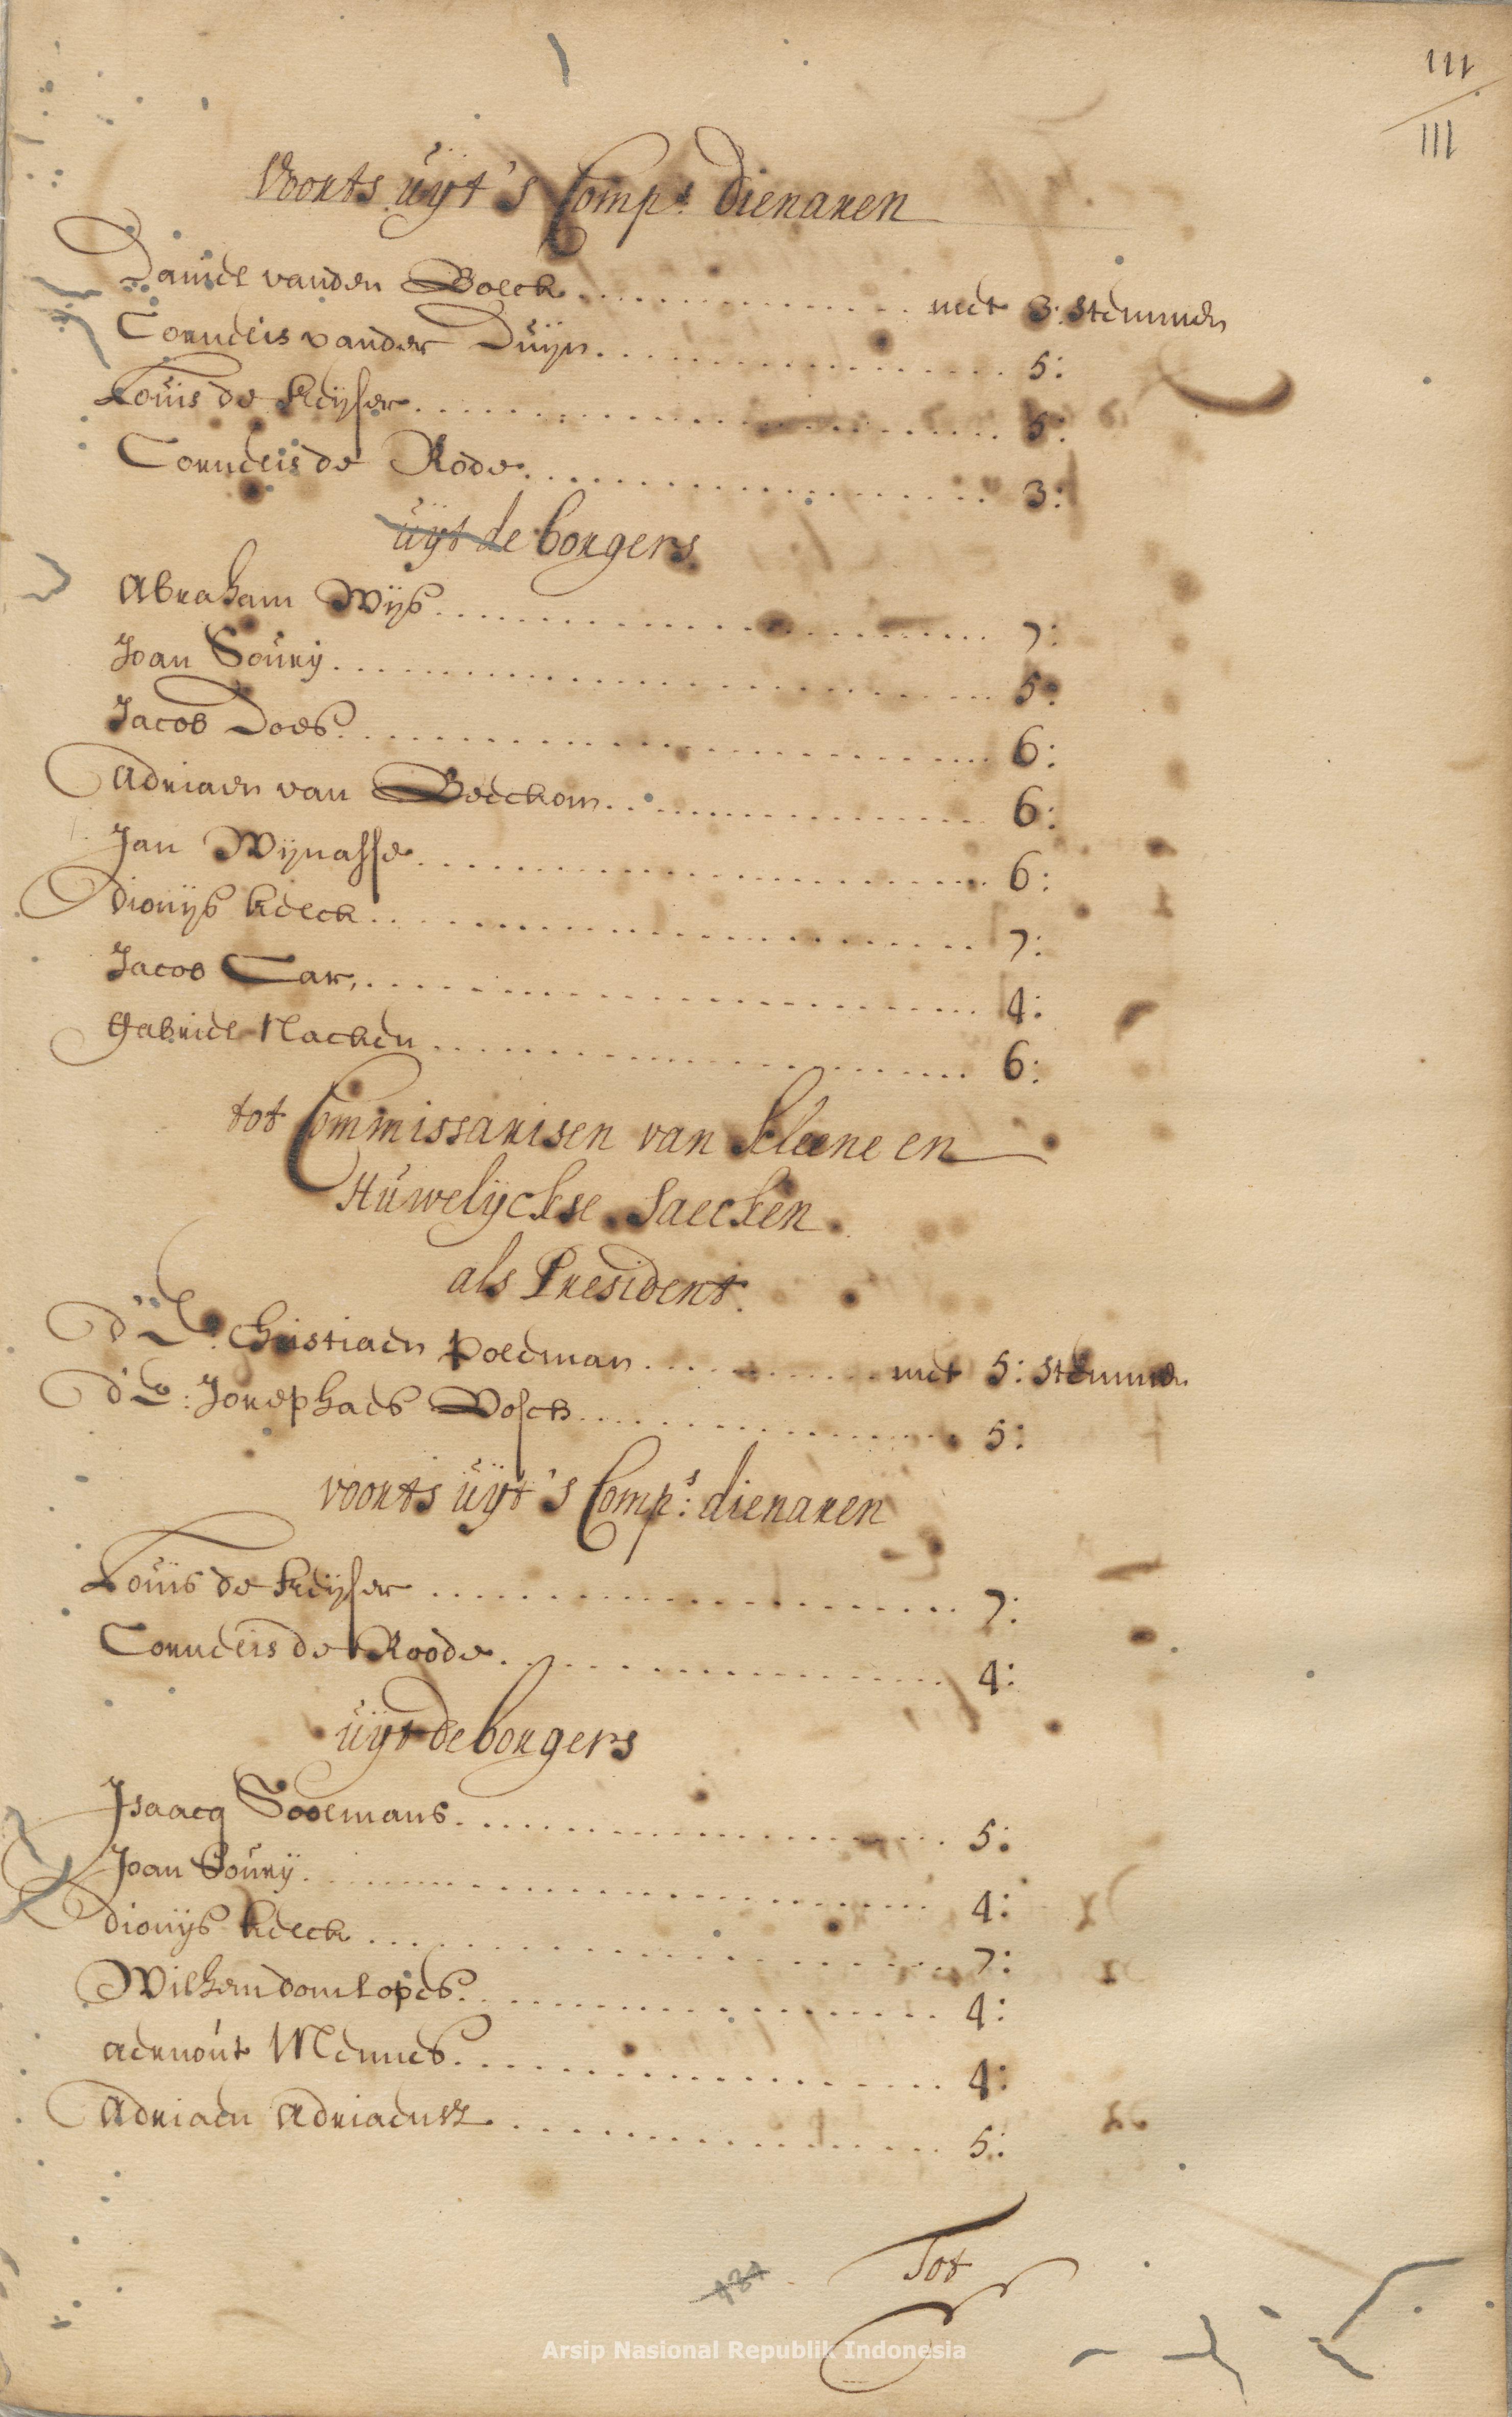 111
111
Voorts uÿt 's Comp:s dienaren
Daniel vanden Bolck ............ met 3: stemmen
Corneelis vander Duijn ............ 5:
Louis de Keijser ............ 5:
Corneelis de Rode ............ 3:
uÿt de borgers
Abraham Wijs ............ 7:
Joan Sourij ............ 5:
Jacob Does ............ 6:
Adriaen van Beeckom ............ 6:
Jan Wijnasse ............ 6:
Dionijs Kelck ............ 7:
Jacob Car ............ 4:
Gabriel Nacken ............ 6:
tot Commissarisen van kleene en
Huwelÿckse saecken
als President
d' E: Christiaen Poleman ............ met 5: stemmen
d' E: Jorephaes Vosch ............ 5:
voorts uÿt 's Comp:s dienaren
Louis de Keijser ............ 7:
Corneelis de Roode ............ 4:
uÿt de borgers
Isaacq Soolmans ............ 5:
Joan Sourij ............ 4:
Dionijs Kelck ............ 7:
Wilhem Domlopes ............ 4:
Aernout Mennes ............ 4:
Adriaen Adriaensz ............ 5:
Tot
Arsip Nasional Republik Indonesia